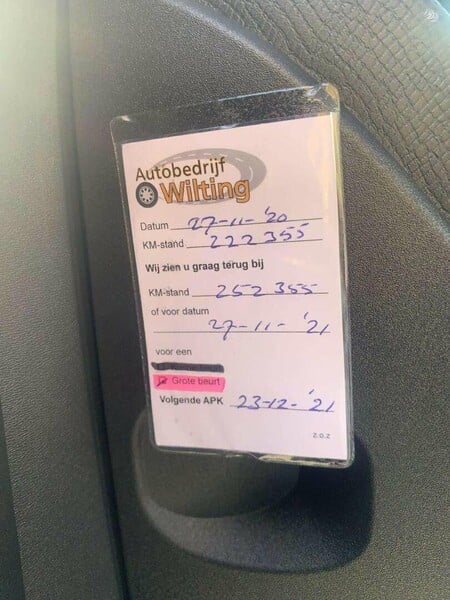 Autobedrijf
Wilting
Datum 27-11-'20
KM-stand 222355
Wij zien u graag terug bij
KM-stand 252355
of voor datum
27-11-'21
voor een
Grote beurt
Volgende APK 23-12-'21
Z.O.Z